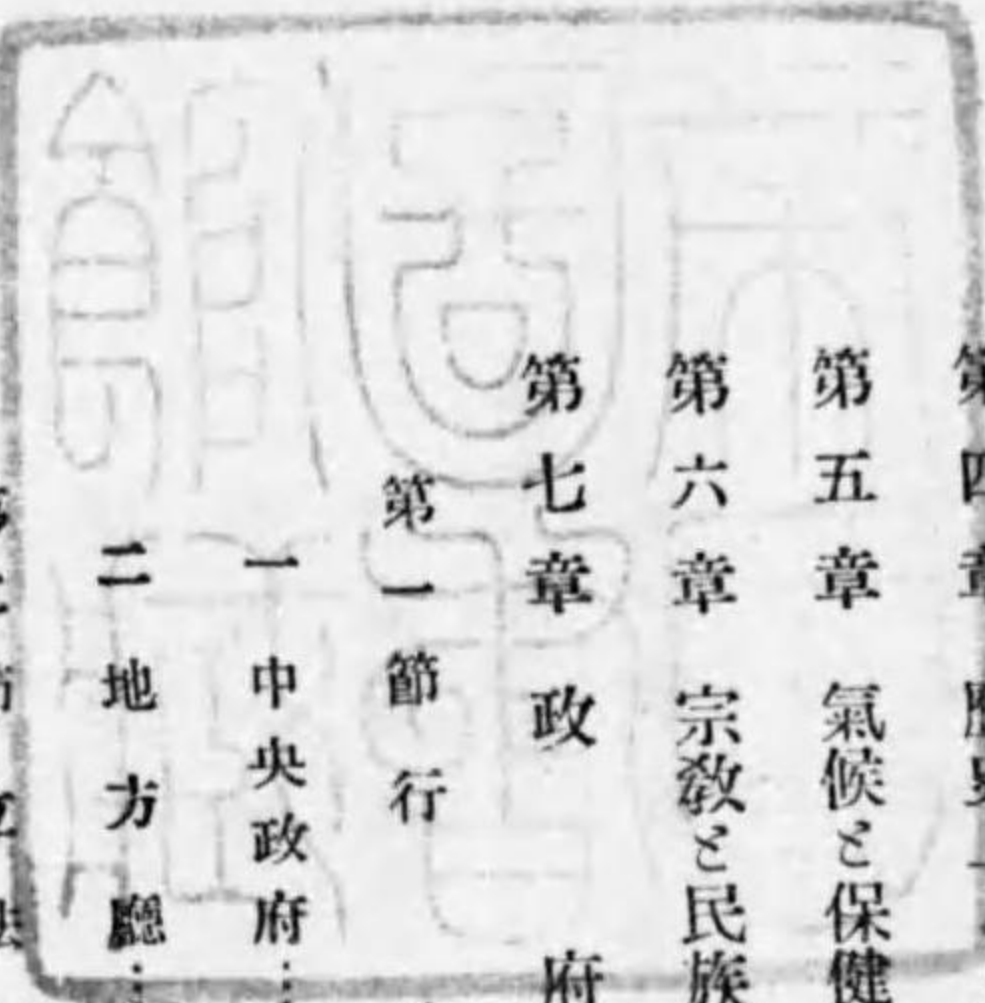 第四章 歷史
第五章 氣候と保健
第六章 宗敎と民族
第七章 政府
第一節 行
一 中央政府……
二 地方廳……